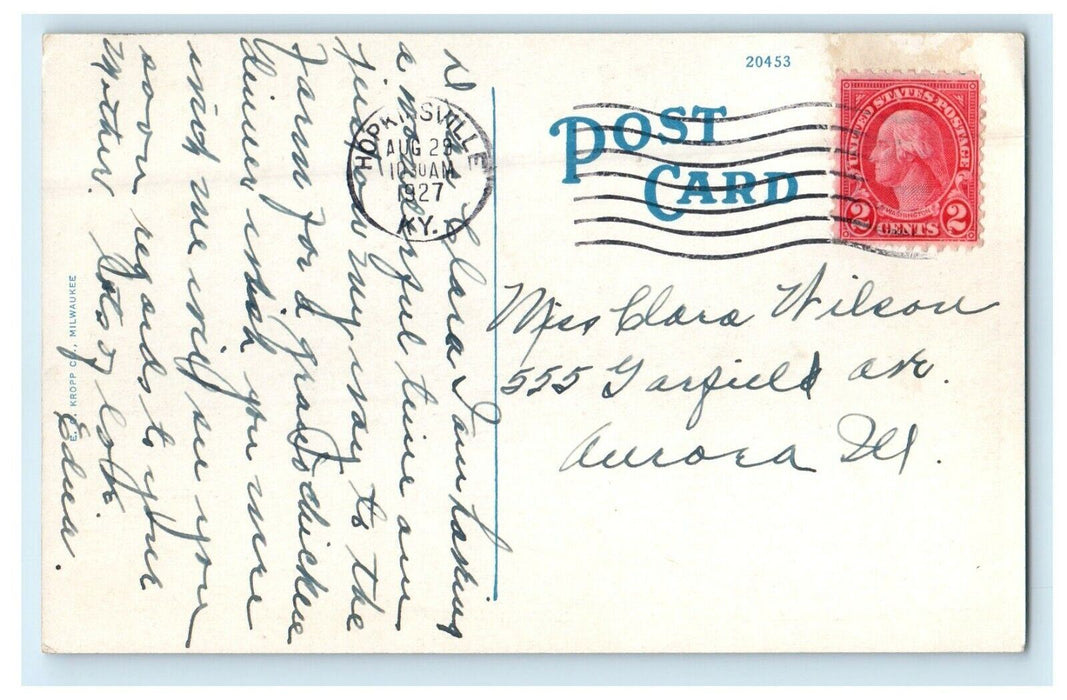 20453
POST
CARD
UNITED STATES POSTAGE
WASHINGTON
2 CENTS 2
HOPKINSVILLE
AUG 29
10 30 AM
1927
KY.
Miss Clara Wilson
555 Garfield Ave.
Aurora Ill.
Dear Clara I am having
a wonderful time am
just on my way to the
Farm for a grand chicken
dinner wish you were
with me will see you
soon regards to your
Mother. Lots of love
Edna.
E. C. KROPP CO., MILWAUKEE